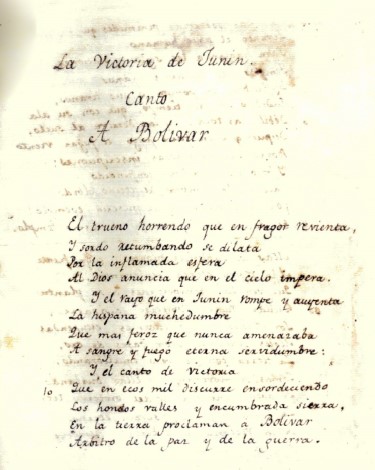 La Victoria de Junin.
Canto
A Bolivar
El trueno horrendo que en fragor revienta,
Y sordo retumbando se dilata
Por la inflamada esfera
Al Dios anuncia que en el cielo impera.
Y el rayo que en Junin rompe y auyenta
La hispana muchedumbre
Que mas feroz que nunca amenazaba
A sangre y fuego eterna servidumbre:
Y el canto de victoria
10 Que en ecos mil discurre ensordeciendo
Los hondos valles y encumbrada sierra,
En la tierra proclaman a Bolivar
Arbitro de la paz y de la guerra.